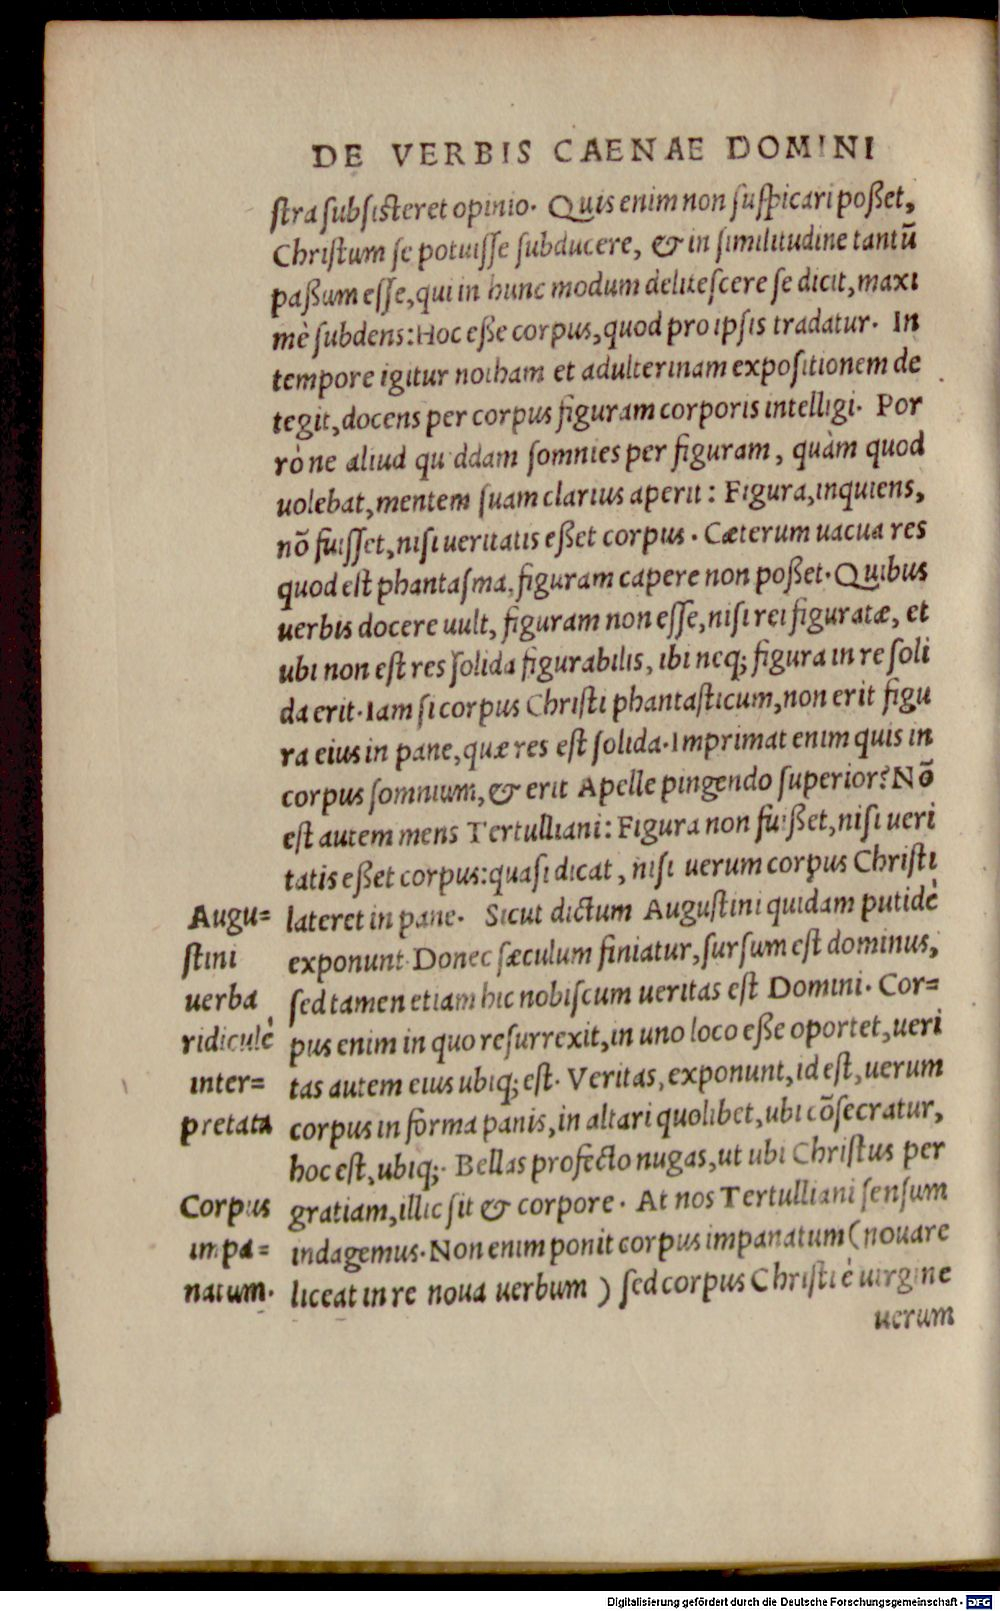 DE VERBIS CAENAE DOMINI
ſtra ſubſiſteret opinio. Quis enim non ſuſpicari poßet,
Chriſtum ſe potuiſſe ſubducere, & in ſimilitudine tantū
paßum eſſe, qui in hunc modum deliteſcere ſe dicit, maxi
mè ſubdens: Hoc eße corpus, quod pro ipſis tradatur. In
tempore igitur notham et adulterinam expoſitionem de
tegit, docens per corpus figuram corporis intelligi. Por
rò ne aliud quiddam ſomnies per figuram, quàm quod
uolebat, mentem ſuam clarius aperit: Figura, inquiens,
nō fuiſſet, niſi ueritatis eßet corpus. Cæterum uacua res
quod eſt phantaſma, figuram capere non poßet. Quibus
uerbis docere uult, figuram non eſſe, niſi rei figuratæ, et
ubi non eſt res ſolida figurabilis, ibi neq; figura in re ſoli
da erit. Iam ſi corpus Chriſti phantaſticum, non erit figu
ra eius in pane, quæ res eſt ſolida. Imprimat enim quis in
corpus ſomnium, & erit Apelle pingendo ſuperior? Nō
eſt autem mens Tertulliani: Figura non fuißet, niſi ueri
tatis eßet corpus: quaſi dicat, niſi uerum corpus Chriſti
lateret in pane. Sicut dictum Auguſtini quidam putidè
exponunt Donec ſæculum finiatur, ſurſum eſt dominus,
ſed tamen etiam hic nobiſcum ueritas eſt Domini. Cor=
pus enim in quo reſurrexit, in uno loco eße oportet, ueri
tas autem eius ubiq; eſt. Veritas, exponunt, id eſt, uerum
corpus in forma panis, in altari quolibet, ubi cōſecratur,
hoc eſt, ubiq;. Bellas profecto nugas, ut ubi Chriſtus per
gratiam, illic ſit & corpore. At nos Tertulliani ſenſum
indagemus. Non enim ponit corpus impanatum (nouare
liceat in re noua uerbum) ſed corpus Chriſti è uirgine
uerum
Augu=
ſtini
uerba
ridiculè
inter=
pretata
Corpus
impa=
natum.
Digitalisierung gefördert durch die Deutsche Forschungsgemeinschaft - DFG